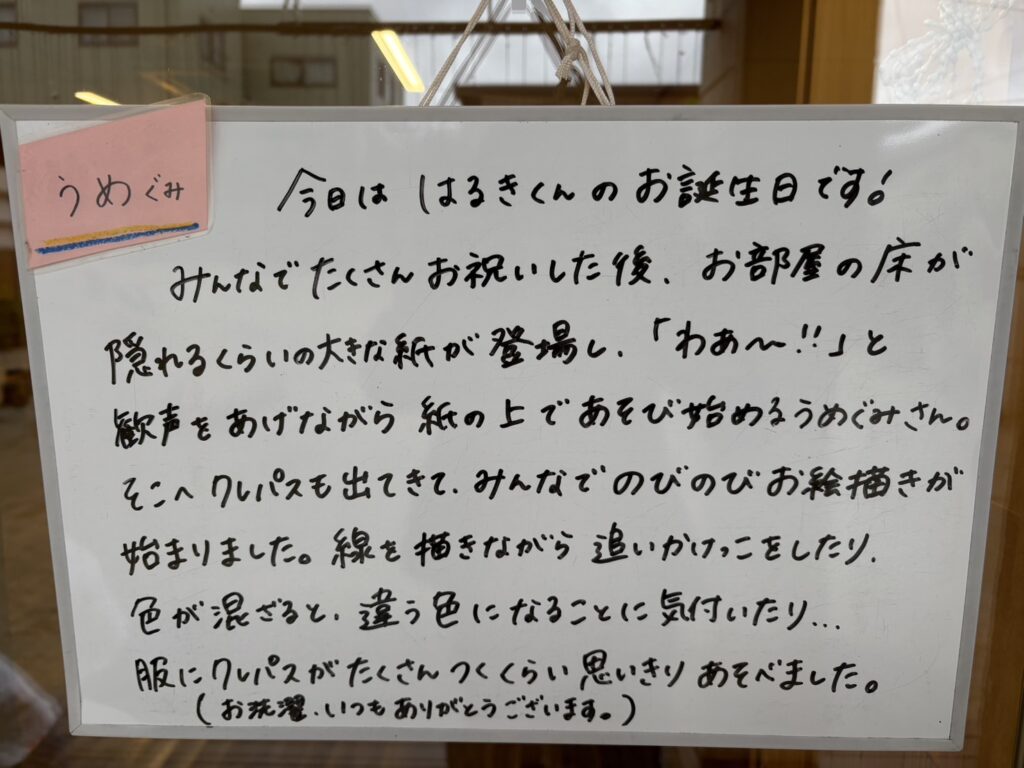 うめぐみ
今日は はるきくんのお誕生日です!
みんなでたくさんお祝いした後、お部屋の床が
隠れるくらいの大きな紙が登場し、「わあ〜!!」と
歓声をあげながら紙の上であそび始めるうめぐみさん。
そこへクレパスも出てきて、みんなでのびのびお絵描きが
始まりました。線を描きながら追いかけっこをしたり、
色が混ざると、違う色になることに気付いたり...
服にクレパスがたくさんつくくらい思いきりあそべました。
(お洗濯、いつもありがとうございます。)